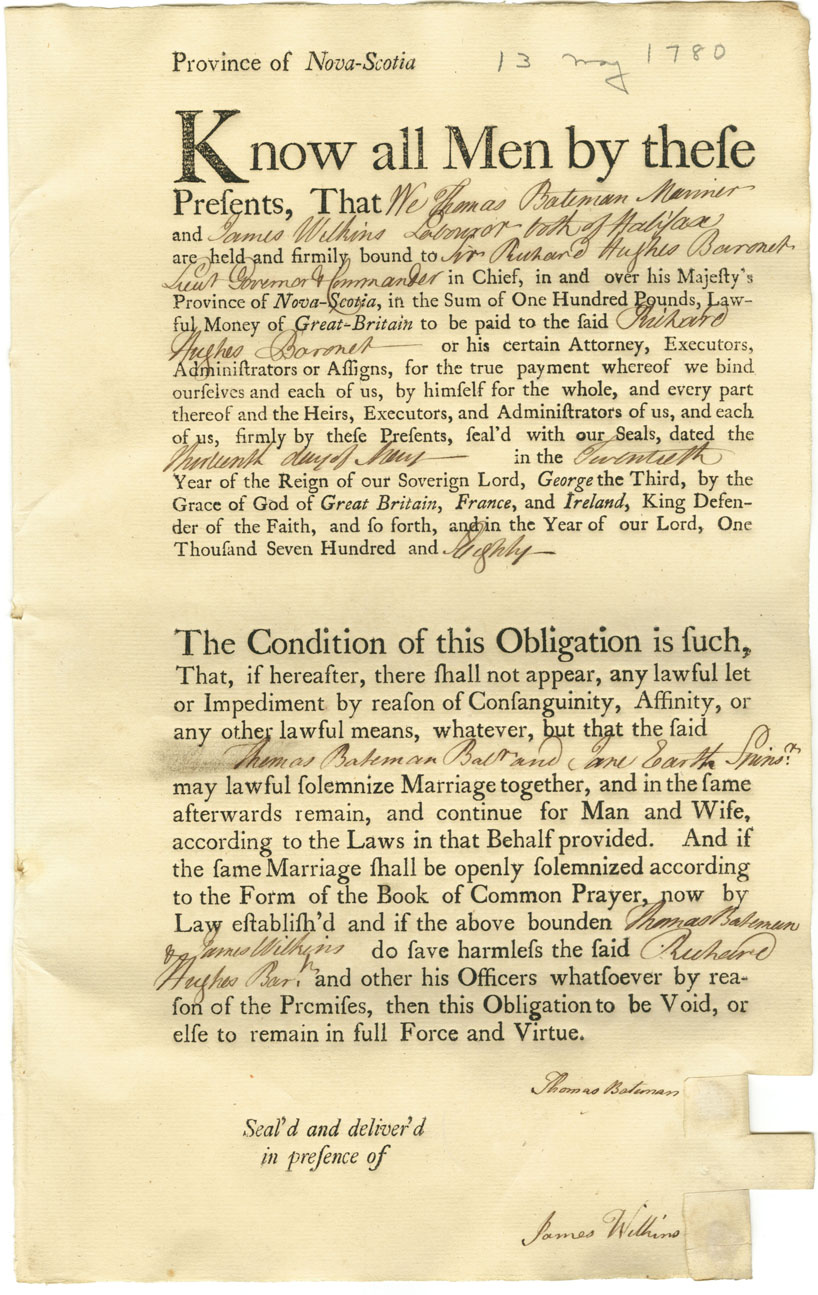 Province of Nova-Scotia 13 may 1780
Know all Men by theſe
Preſents, That We Thomas Bateman Mariner
and James Wilkins Labouror both of Halifax
are held and firmily bound to Sir Richard Hughes Baronet
Lieut Governor & Commander in Chief, in and over his Majeſty's
Province of Nova-Scotia, in the Sum of One Hundred Pounds, Law-
ful Money of Great-Britain to be paid to the ſaid Richard
Hughes Baronet or his certain Attorney, Executors,
Adminiſtrators or Aſſigns, for the true payment whereof we bind
ourſelves and each of us, by himſelf for the whole, and every part
thereof and the Heirs, Executors, and Adminiſtrators of us, and each
of us, firmly by theſe Preſents, ſeal'd with our Seals, dated the
thirteenth day of May in the Twentieth
Year of the Reign of our Soverign Lord, George the Third, by the
Grace of God of Great Britain, France, and Ireland, King Defen-
der of the Faith, and ſo forth, and in the Year of our Lord, One
Thouſand Seven Hundred and Eighty
The Condition of this Obligation is ſuch,
That, if hereafter, there ſhall not appear, any lawful let
or Impediment by reaſon of Conſanguinity, Affinity, or
any other lawful means, whatever, but that the ſaid
Thomas Bateman Batr and Jane Earth Spinsr.
may lawful ſolemnize Marriage together, and in the ſame
afterwards remain, and continue for Man and Wife,
according to the Laws in that Behalf provided. And if
the ſame Marriage ſhall be openly ſolemnized according
to the Form of the Book of Common Prayer, now by
Law eſtabliſh'd and if the above bounden Thomas Bateman
& James Wilkins do ſave harmleſs the ſaid Richard
Hughes Bart. and other his Officers whatſoever by rea-
ſon of the Premiſes, then this Obligation to be Void, or
elſe to remain in full Force and Virtue.
Thomas Bateman
Seal'd and deliver'd
in preſence of
James Wilkins